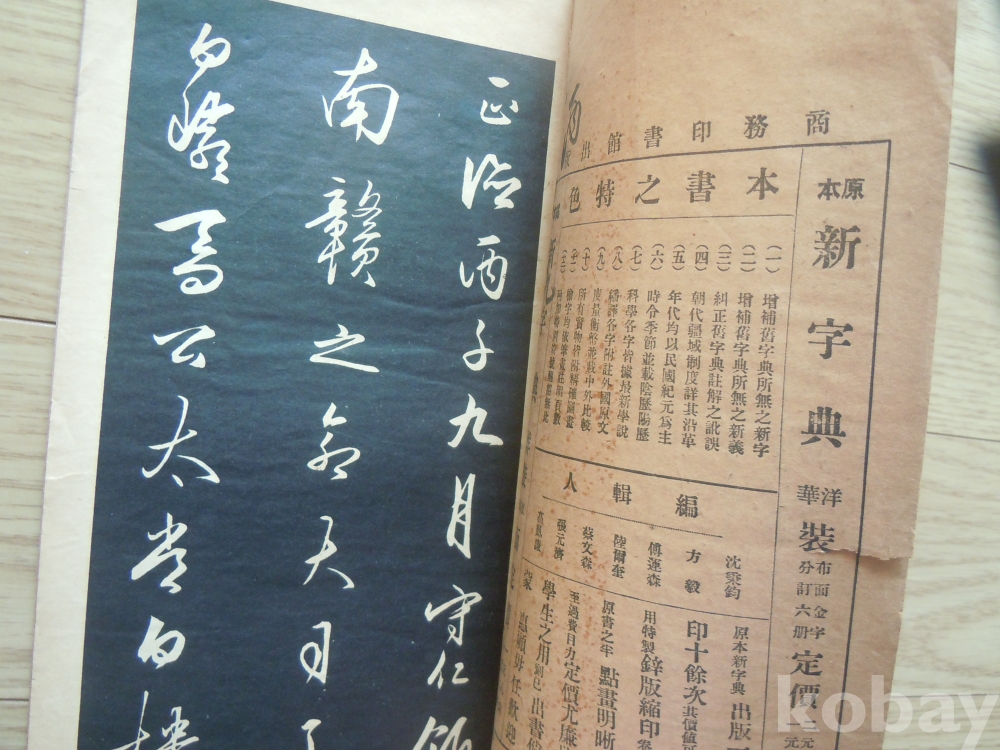 正德丙子九月守仁領
南贛之命大司馬
白巖喬公太常白樓
商務印書館出
本書之特色
原本
新字典
洋華裝
布面金字
分訂六册
定價
(一)增補舊字典所無之新字
(二)增補舊字典所無之新義
(三)糾正舊字典註解之訛誤
(四)朝代疆域制度詳其沿革
(五)年代均以民國紀元爲主
(六)時令季節並載陰歷陽歷
(七)科學各字皆據最新學說
(八)繙譯各字附註外國原文
(九)度量衡幣並載中外比較
(十)所有實物皆附精確圖畫
編輯人
沈秉鈞
方毅
傅運森
陸爾奎
蔡文森
張元濟
原本新字典 出版
印十餘次 其價值
用特製鋅版縮印
原書之半 點畫明晰
定價尤廉
學生之用 出書
惠顧毋任歡迎
kobay